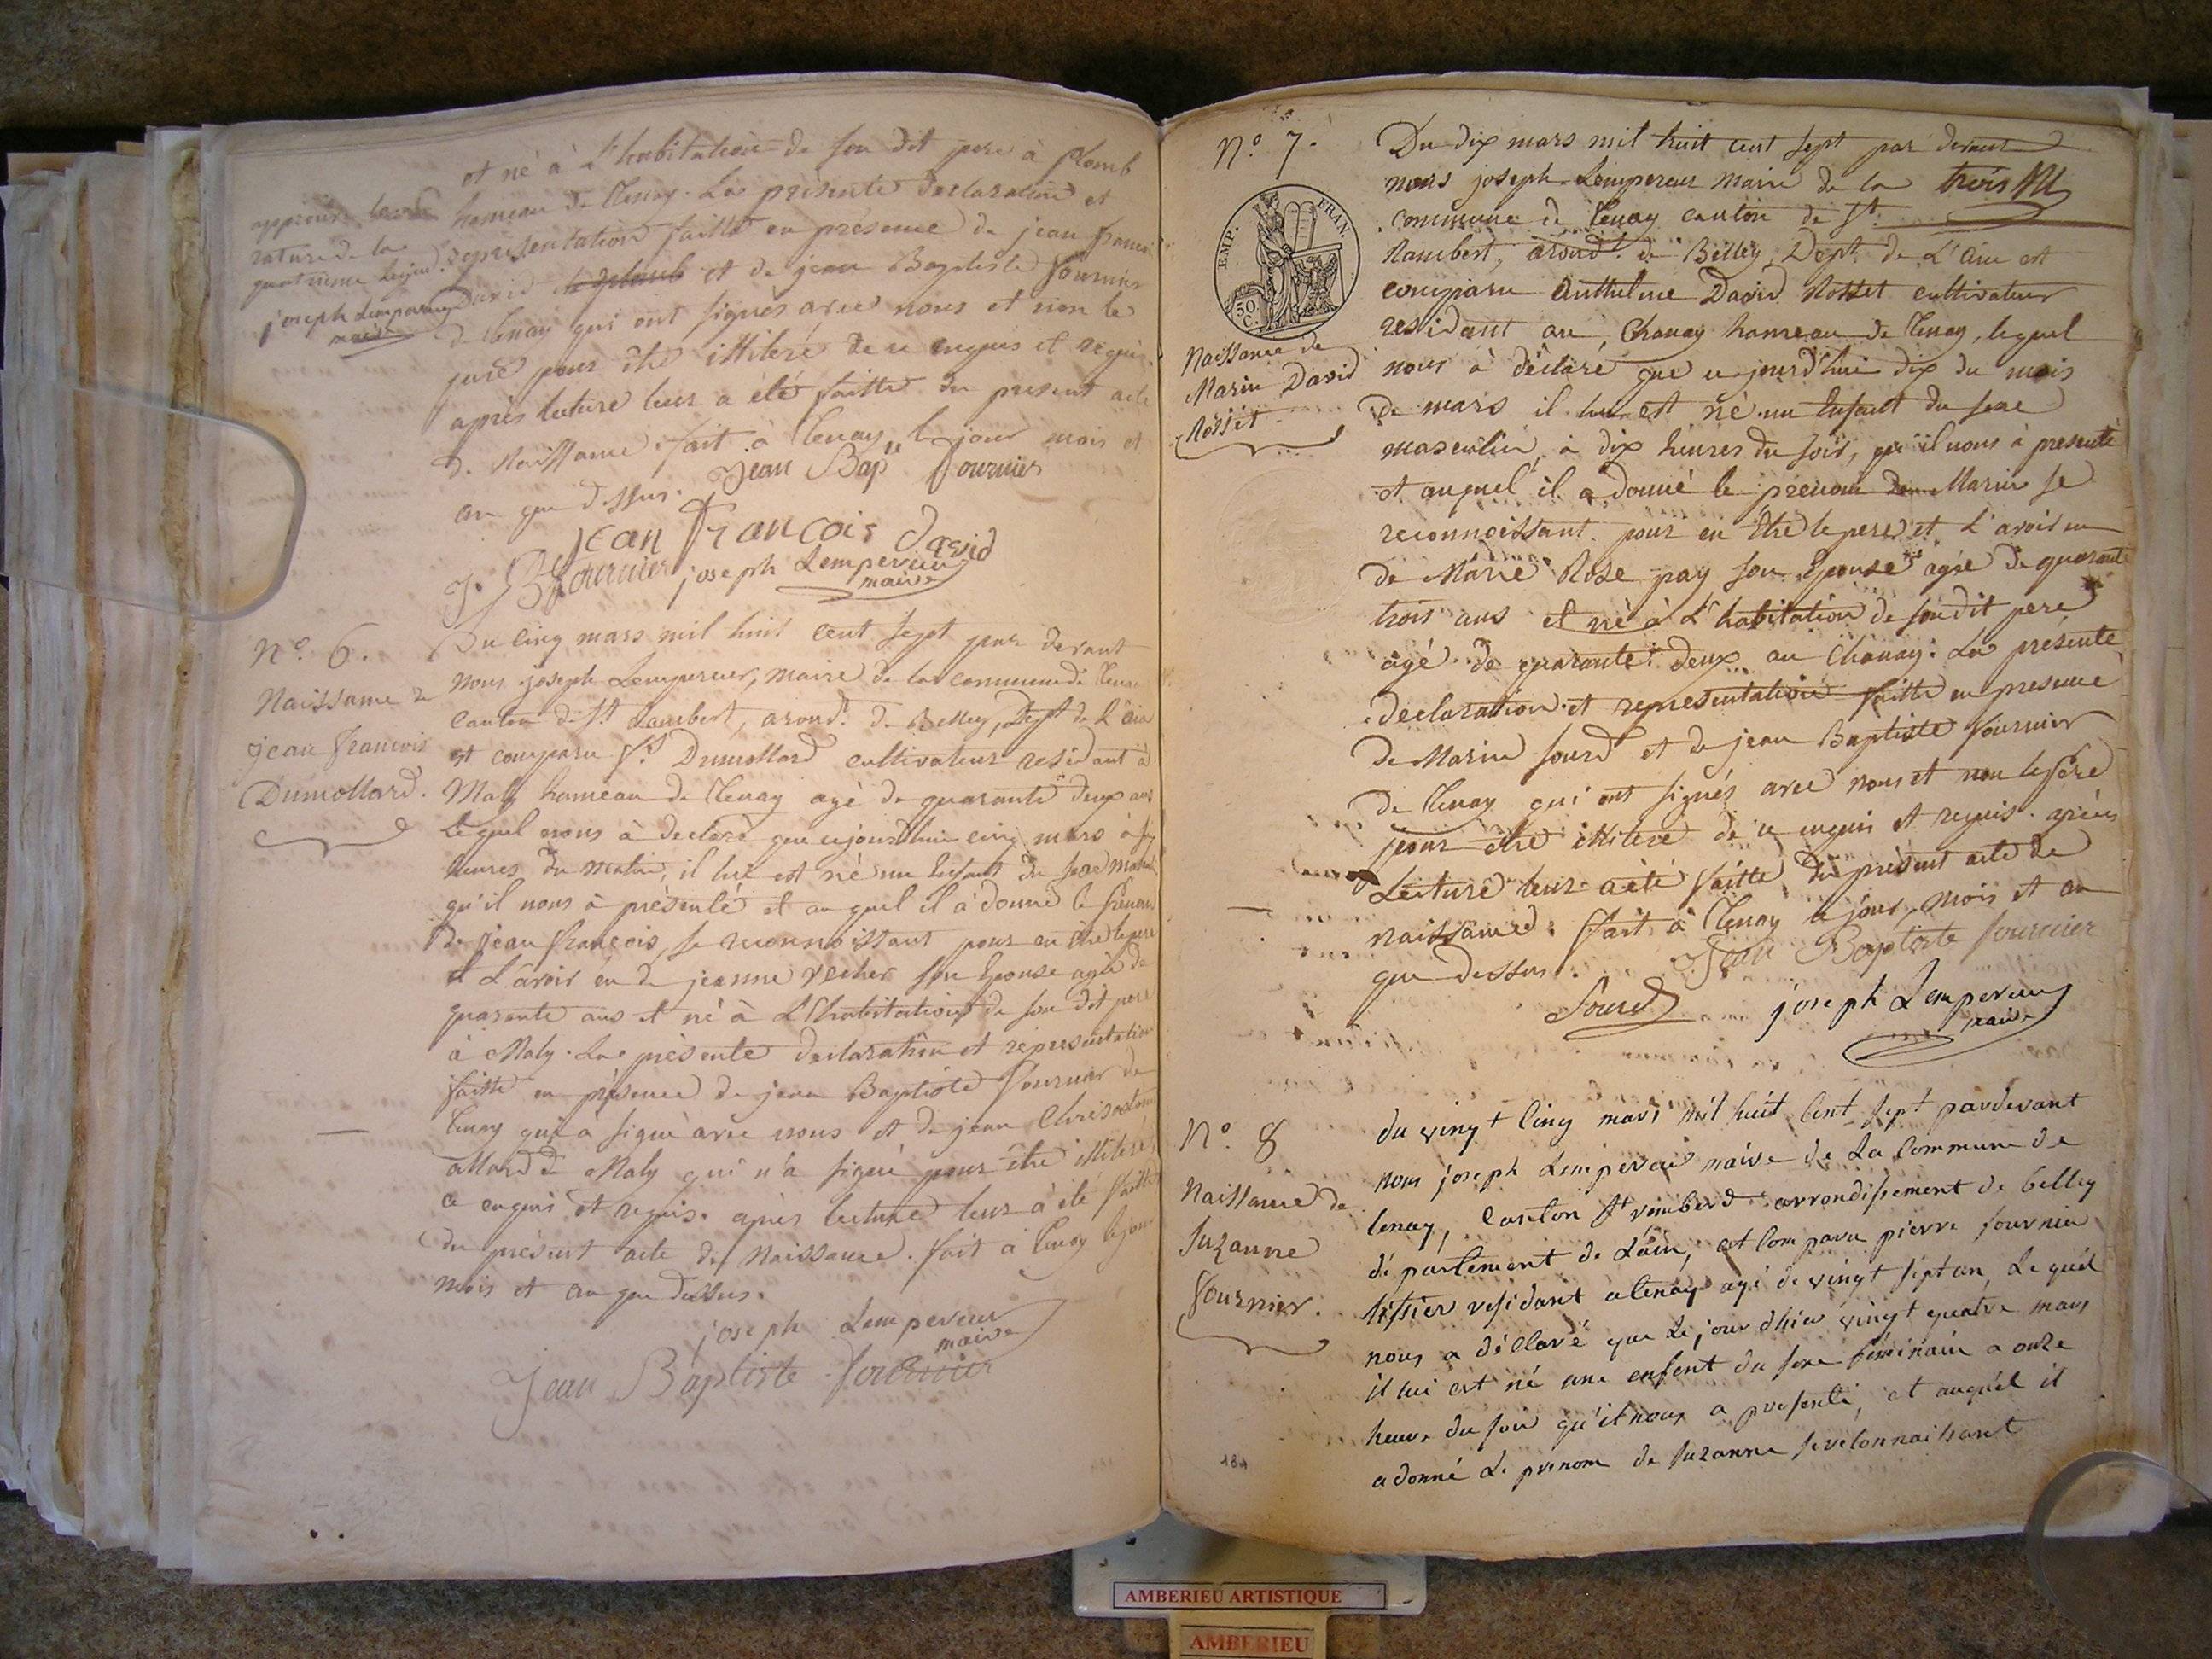 et né à L'habitation de son dit pere à Plomb
hameau de Tenay. La présente declaration et
representation faitte en présence de jean francois
David de plomb et de jean Baptiste fournier
de tenay qui ont signés avec nous et non le
pere pour être illiteré de ce enquis et requis.
après lecture leur a été faitte du present acte
de Naissance. fait à Tenay le jour mois et
an que dessus.
Jean Bap.te Fournier
jean Francois david
J. B. fournier
joseph Lempereur
maire
rature de la
quatrieme ligne
joseph Lempereur
maire
N.o 6.
Naissance de
jean francois
Dumollard.
Du cinq mars mil huit cent sept par devant
nous joseph Lempereur, maire de la commune de Tenay
canton de S.t Rambert, arond.t de Belley, Dept de L'ain
est comparu f.s Dumollard cultivateur residant à
Maly hameau de Tenay agé de quarante deux ans
lequel nous à declaré que cejourdhui cinq mars à
heures du matin, il lui est né un Enfant du sexe
qu'il nous à présenté et auquel il à donné le prenom
de jean francois, se reconnoissant pour en être le pere
et L'avoir eu de jeanne Vecher son Epouse agée de
quarante ans et né à L'habitation de son dit pere
à Maly. La présente declaration et représentation
faitte en présence de jean Baptiste fournier de
Tenay qui a signé avec nous et de jean Chrisostome
allard de Maly qui n'a signé pour être illiteré,
a enquis et requis. après lecture leur à été faitte
du présent acte de Naissance. fait à Tenay le jour
mois et an que dessus.
joseph Lempereur
maire
Jean Baptiste fournier
N.o 7.
EMP. FRAN.
50 C.
Naissance de
Marin David
Rosset
Du dix mars mil huit cent sept par devant
nous joseph Lempereur Maire de la
commune de Tenay canton de S.t
Rambert, arond.t de Belley, Dept. de L'Ain est
comparu Anthelme David Rosset cultivateur
residant au, Chanay hameau de Tenay, lequel
nous à déclaré que ce jourd'hui dix du mois
de mars il lui est né un Enfant du sexe
masculin, à dix heures du soir, qu'il nous à presenté
et auquel il a donné le prenom de Marin se
reconnoissant pour en être le pere et L'avoir eu
de Marie Rose pay son Epouse agée de quarante
trois ans et né à L'habitation de son dit pere
agé de quarante deux au Chanay. La présente
declaration et representation faitte en presence
de Marin sourd et de jean Baptiste fournier
de Tenay qui ont signés avec nous et non le pere
pour être illiteré de ce enquis et requis. après
Lecture leur a été faitte du présent acte de
naissance. fait à Tenay le jour, mois et an
que dessus.
Jean Baptiste fournier
Sourd
joseph Lempereur
maire
N.o 8
Naissance de
Suzanne
fournier.
du vingt cinq mars mil huit cent sept pardevant
nous joseph Lempereur maire de La Commune de
tenay, Canton St rembert arrondissement de belley
département de L'ain, est Comparu pierre fournier
tissier residant a tenay agé de vingt sept an, Le quel
nous a déclaré que Le jour d'hier vingt quatre mars
il lui est né une enfent du sexe féminain a onze
heure du soir qu'il nous a presenté, et auquel il
a donné Le prenom de suzanne se reconnaissant
184
AMBERIEU ARTISTIQUE
AMBERIEU